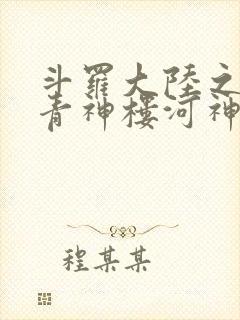 斗羅大陸之
青神樓河神
程某某